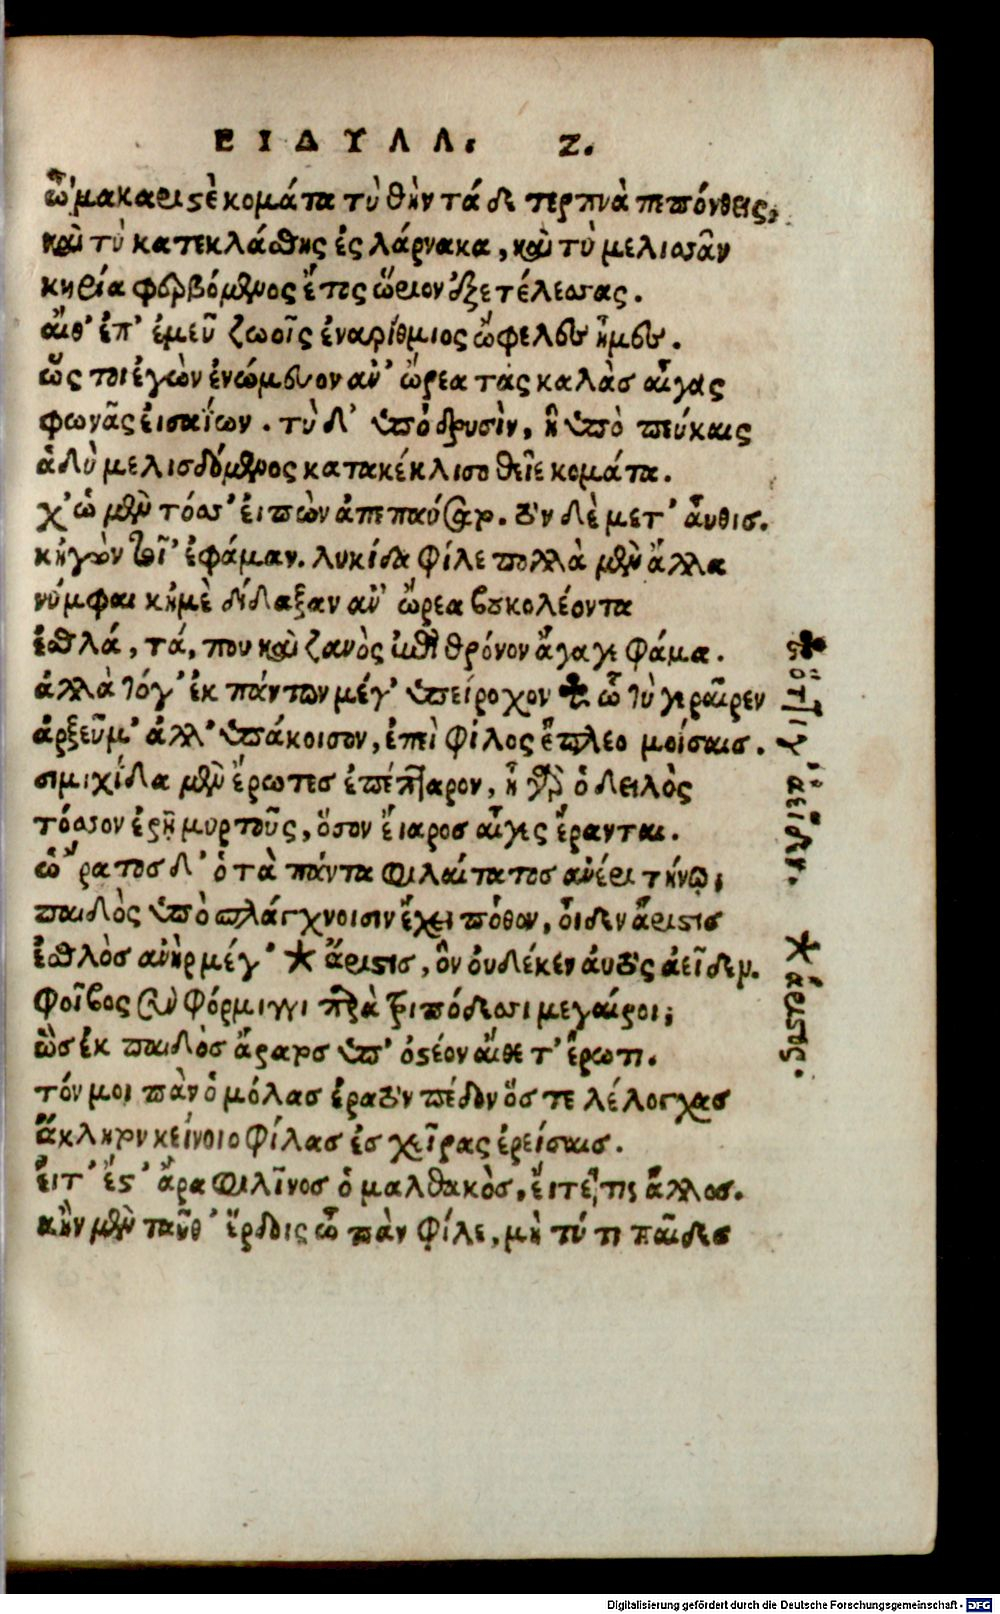 ΕΙΔΥΛΛ. Ζ.
ὦ μακαριςὲ κομάτα τὺ θὴν τάδε τερπνὰ πεπόνθεις,
καὶ τὺ κατεκλάσθης ἐς λάρνακα, καὶ τὺ μελισσᾶν
κηρία φερβόμενος ἔτος ὥριον ἐξετέλεσσας.
αἴθ' ἐπ' ἐμεῦ ζωοῖς ἐναρίθμιος ὤφελες ἦμες.
ὥς τοι ἐγὼν ἐνόμευον ἀν' ὤρεα τὰς καλὰσ αἶγας
φωνᾶς εἰσαΐων. τὺ δ' ὑπὸ δρυσὶν, ἢ ὑπὸ πεύκαις
ἁδὺ μελισδόμενος κατακέκλισο θεῖε κομάτα.
χ' ὡ μὲν τόσσ' εἰπὼν ἀπεπαύσατο. τὸν δὲ μετ' αὖθισ.
κἠγὼν τοῖ' ἐφάμαν. λυκίδα φίλε πολλὰ μὲν ἄλλα
νύμφαι κἠμὲ δίδαξαν ἀν' ὤρεα βουκολέοντα
ἐσθλά, τά, που καὶ ζανὸς ἐπὶ θρόνον ἄγαγε φάμα.
ἀλλὰ τόγ' ἐκ πάντων μέγ' ὑπείροχον ✤ ὧ τὺ γεραῖρεν
ἀρξεῦμ' ἀλλ' ὑπάκοισον, ἐπεὶ φίλος ἔπλεο μοίσαισ.
σιμιχίδα μὲν ἔρωτεσ ἐπέπταρον, ἦ γὰρ ὁ δειλὸς
τόσσον ἐρῇ μυρτοῦς, ὅσον εἴαροσ αἶγες ἔρανται.
ὡ' ρατοσ δ' ὁ τὰ πάντα φιλαίτατοσ ἀνέρι τήνῳ,
παιδὸς ὑπὸ σπλάγχνοισιν ἔχει πόθον, οἶδεν ἄριςισ
ἐσθλὸσ ἀνὴρ μέγ' * ἄριςισ, ὃν οὐδέκεν αὐτὸς ἀείδεν.
φοῖβος σὺν φόρμιγγι παρὰ τριπόδεσσι μεγαίροι;
ὡσ ἐκ παιδὸσ ἄρατοσ ὑπ' ὀςέον αἴθετ' ἔρωτι.
τόν μοι πὰν ὁμόλασ ἐρατὸν πέδον ὅς τε λέλογχασ
ἄκλητον κείνοιο φίλασ ἐσ χεῖρας ἐρείσαισ.
εἴτ' ἔς' ἄρα φιλῖνοσ ὁ μαλθακὸσ, εἴτε τις ἄλλοσ.
κἢν μὲν ταῦθ' ἕρδοις ὦ πὰν φίλε, μή τύ τι παῖδεσ
✤ ὅττι γ' ἀείδεν.
* ἄριςος.
Digitalisierung gefördert durch die Deutsche Forschungsgemeinschaft - DFG